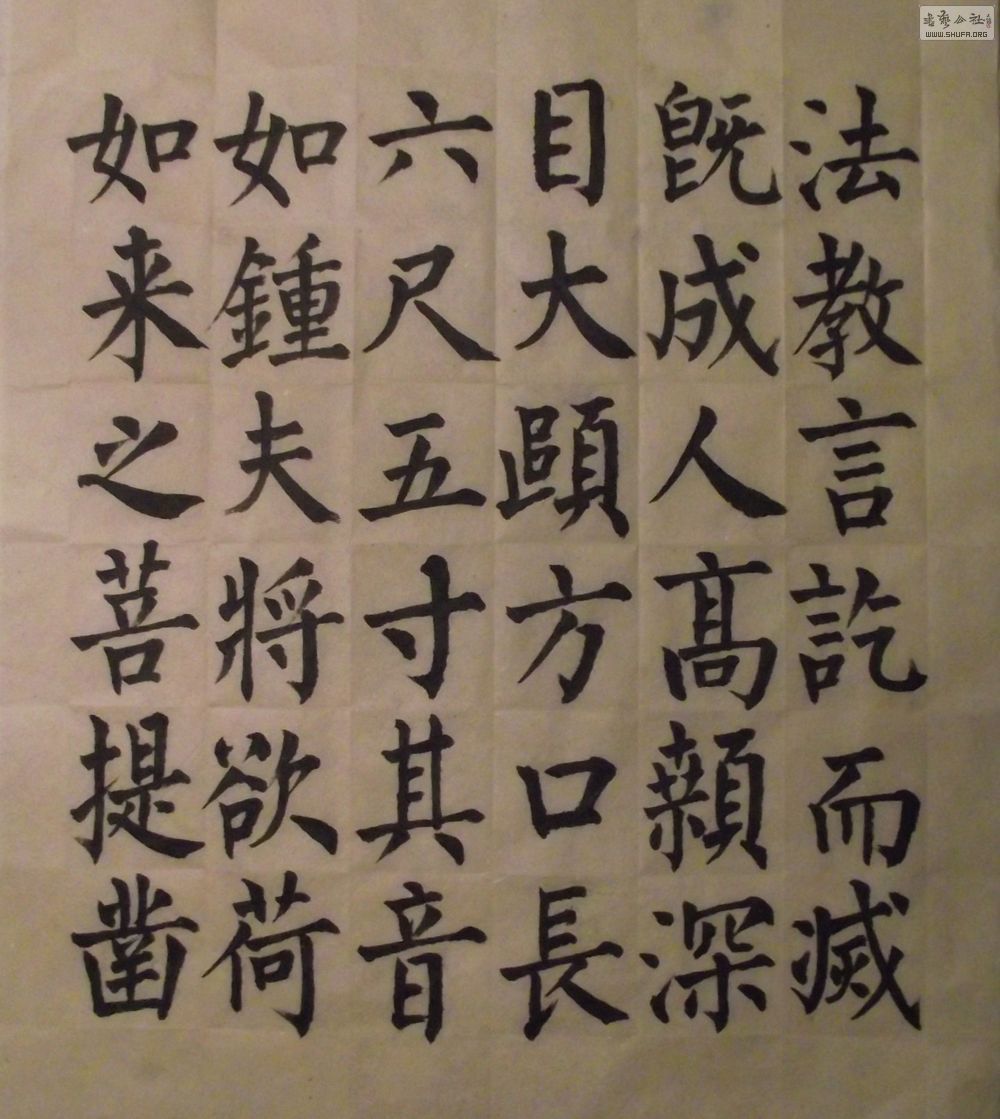 法教言訖而滅
既成人高顙深
目大頤方口長
六尺五寸其音
如鍾夫將欲荷
如来之菩提鑿
書藝公社
WWW.SHUFA.ORG